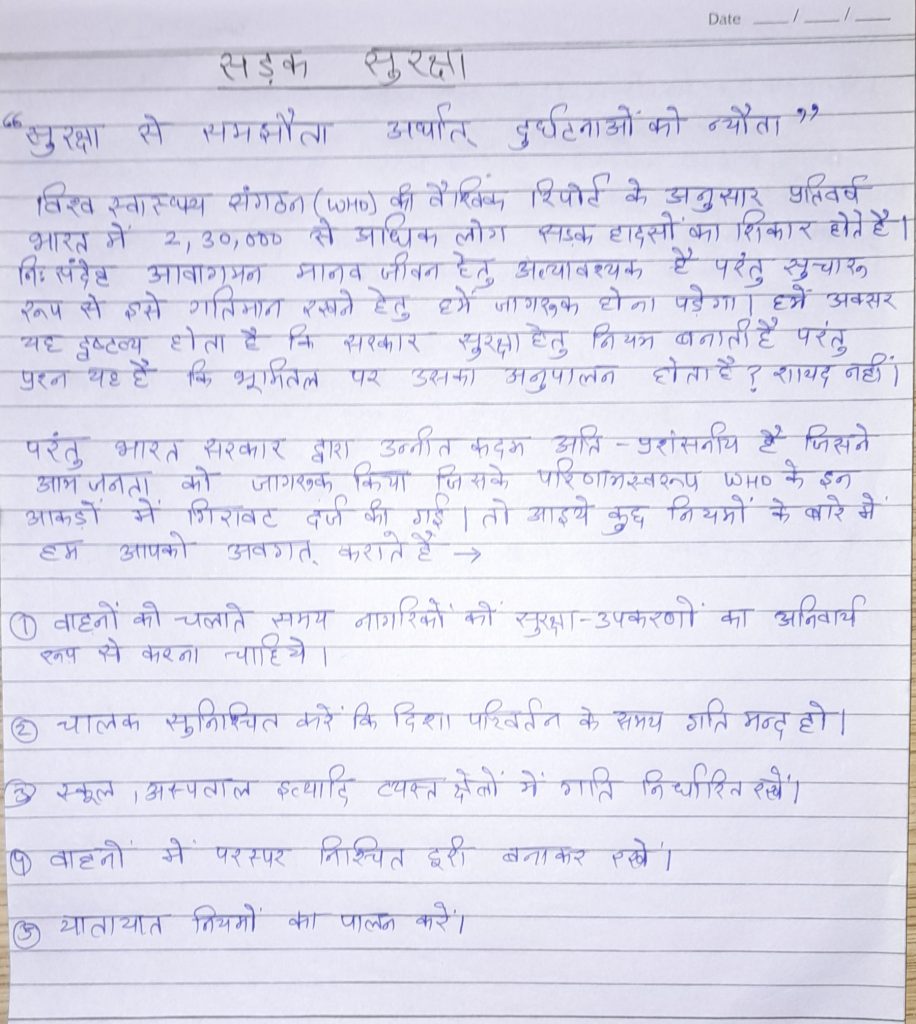 Date __/__/__
सड़क सुरक्षा
“सुरक्षा से समझौता अर्थात् दुर्घटनाओं को न्यौता”
विश्व स्वास्थ्य संगठन (WHO) की वैश्विक रिपोर्ट के अनुसार प्रतिवर्ष
भारत में 2,30,000 से अधिक लोग सड़क हादसों का शिकार होते है।
निः संदेह आवागमन मानव जीवन हेतु अत्यावश्यक है परंतु सुचारू
रूप से इसे गतिमान रखने हेतु हमें जागरूक होना पड़ेगा। हमें अक्सर
यह दृष्टव्य होता है कि सरकार सुरक्षा हेतु नियम बनाती है परंतु
प्रश्न यह है कि भूमितल पर उसका अनुपालन होता है? शायद नहीं।
परंतु भारत सरकार द्वारा उन्नीत कदम अति-प्रशंसनीय है जिसने
आम जनता को जागरूक किया जिसके परिणामस्वरूप WHO के इन
आकड़ों में गिरावट दर्ज की गई। तो आइये कुछ नियमों के बारे में
हम आपको अवगत् कराते हैं →
① वाहनों को चलाते समय नागरिकों कों सुरक्षा-उपकरणों का अनिवार्य
रूप से करना चाहिये।
② चालक सुनिश्चित करें कि दिशा परिवर्तन के समय गति मन्द हो।
③ स्कूल, अस्पताल इत्यादि व्यस्त क्षेत्रों में गति निर्धारित रखें।
④ वाहनों में परस्पर निश्चित दूरी बनाकर रखें।
⑤ यातायात नियमों का पालन करें।